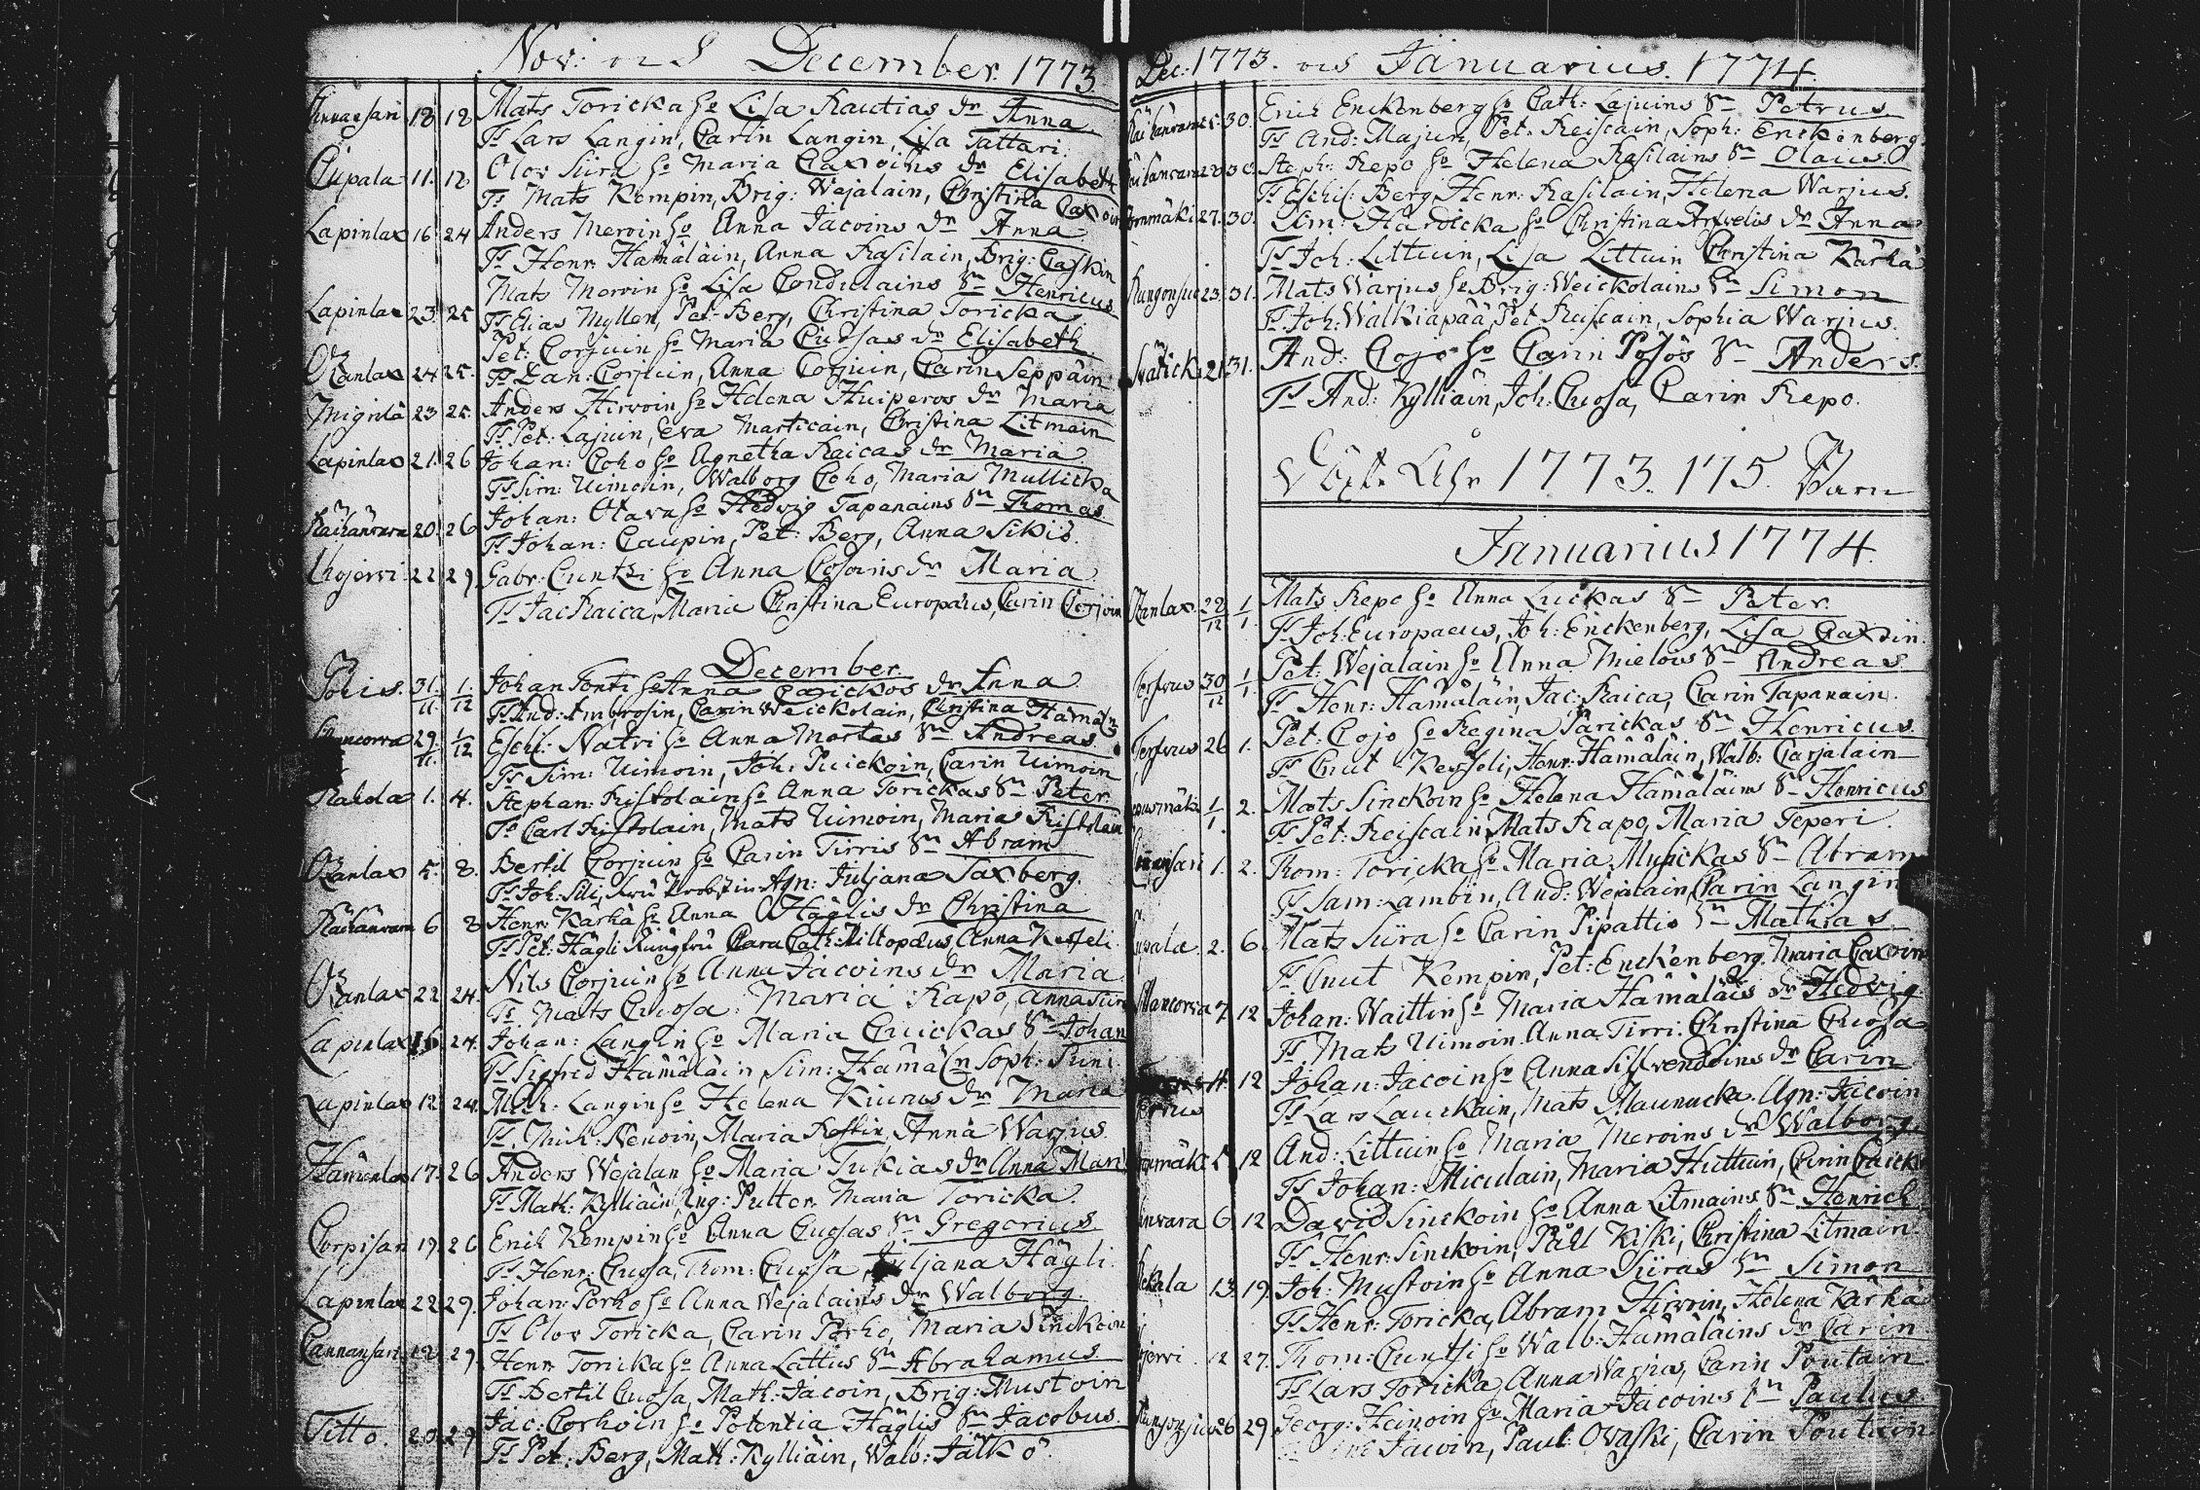 Nov: och December 1773
Cannansari 18 18 Mats Toricka ho Lisa Rautias dr Anna
Ts Lars Langin, Carin Langin, Lisa Tattari.
Cupala 11. 18 Olov Siira ho Maria Caxoins dr Elisabeth
Ts Mats Kempin, Brig: Wejalain, Christina Caxoin
Lapinlax 16 24 Anders Meroin ho Anna Jacoins dr Anna
Ts Henr: Hämäläin, Anna Rasilain, Brig: Caskin
Mats Meroin ho Lisa Condulains Sn Henricus
Lapinlax 23. 25 Ts Elias Myllen, Pet: Berg, Christina Toricka
Pet: Corjuin ho Maria Cuosas dr Elisabeth
Ranlax 24 25. Ts Dan: Corjuin, Anna Corjuin, Carin Seppäin
Migrilä 23 25. Anders Hirvoin ho Helena Huiperos dr Maria
Ts Pet: Lajuin, Eva Marticain, Christina Litmain
Lapinlax 21. 26 Johan: Coho ho Agnetha Raicas dr Maria
Ts Sim: Uimoin, Walborg Coho, Maria Mullicka
Raihänvara 20. 26 Johan: Otava ho Hedvig Tapanains Sn Thomas
Ts Johan: Caupin, Pet: Berg, Anna Sikiö.
22 29 Gabr: Cuntzi ho Anna Cosoins dr Maria
Ts Jac Raica, Maria Christina Europæus, Carin Corjoin
December
Pohis. 31/11. 1/12 Johan Ponti ho Anna Carickos dr Anna
Ts And: Ambrosin, Carin Weickolain, Christina Hämäln
29/11. 1/12 Eschil: Natri ho Anna Martas Sn Andreas
Ts Sim: Uimoin, Joh: Puickoin, Carin Uimoin
Rahola 1. 4. Stephan: Ristolain ho Anna Torickas Sn Peter
Ts Carl Ristolain, Mats Uimoin, Maria Ristolain
Ranlax 5. 8. Bertil Corjuin ho Carin Tirris Sn Abram
Ts Joh: Sili, fru Probstin Agn: Juljana Saxberg.
Raihänvara 6 8 Henr: Kärhä ho Anna Häglis dr Christina
Ts Pet: Hägli Jungfru Clara Cath: Ziltopæus, Anna Kesseli
Ranlax 22 24. Nils Corjuin ho Anna Jacoins dr Maria
Ts Mats Cuosa, Maria Rapo, Anna Siira
Lapinlax 16 24. Johan: Langin ho Maria Cuickas Sn Johan
Ts Sigfred Hämäläin, Sim: Hämäln Soph: Puni.
Lapinlax 12 24. Mich: Langin ho Helena Kiurus dr Maria
Ts Mik: Nenoin, Maria Rostin, Anna Warjus.
17. 26 Anders Wejalan ho Maria Tukias dr Anna Mari
Ts Math: Kylliäin, Ing: Putter, Maria Toricka.
Corpisari 19. 26 Erik Kempin ho Anna Cuosas Sn Gregorius
Ts Henr: Cuosa, Thom: Cuosa, Juljana Hägli.
Lapinlax 22 29. Johan: Porho ho Anna Wejalains dr Walborg
Ts Olov Toricka, Carin Porho, Maria Sinckoin
Cannansari 12 29. Henr: Toricka ho Anna Lattus Sn Abrahamus
Ts Bertil Cuosa, Math: Jacoin, Brig: Mustoin
Titto. 20. 29 Jac: Corhoin ho Potentia Häglis Sn Jacobus
Ts Pet: Berg, Math: Kylliäin, Walb: Jälkö.
Dec: 1773. och Januarius. 1774.
30. Erick Enckenberg ho Cath: Lajuins Sn Petrus
Ts And: Majun, Pet: Reiscain, Soph: Enckenberg
28 30. Steph: Repo ho Helena Rasilains Sn Olaus
Ts Eschil: Berg, Henr: Rasilain, Helena Warjus.
27. 30. Sim: Hardicka ho Christina Arvelis dr Anna
Ts Joh: Littuin, Lisa Littuin Christina Kärhä
Rungonsuo 23. 31. Mats Warjus ho Brig: Weickolains Sn Simon
Ts Joh: Walkiapää, Pet: Reiscain, Sophia Warjus.
21 31. And: Cojo ho Carin Pösös Sn Anders.
Ts And: Kylliäin, Joh: Cuosa, Carin Repo.
föt. Åhr 1773. 175. Barn
Januarius 1774.
Ranlax 28/12 1/1. Mats Repo ho Anna Luckas Sn Peter
Ts Joh: Europaeus, Joh: Enckenberg, Lisa Caxoin.
Terfwus 30/12 1/1. Pet: Wejalain ho Anna Mielois Sn Andreas
Ts Henr: Hämäläin, Jac: Raica, Carin Tapanain.
Terfwus 26 1. Pet: Cojo ho Regina Parickas Sn Henricus
Ts Cnut Kesseli, Henr: Hämäläin, Walb: Carjalain
1/1. 2. Mats Sinckoin ho Helena Hämäläins Sn Henricus
Ts Pet: Reiscain, Mats Rapo, Maria Teperi.
1. 2. Thom: Toricka ho Maria Musickas Sn Abram
Ts Sam: Lamoin, And: Wejalain, Carin Langin
Cupala 2. 6. Mats Siira ho Carin Pipattis Sn Mathias
Ts Cnut Kempin, Pet: Enckenberg, Maria Caxoin
7. 12 Johan: Waittin ho Maria Hämäläis dr Hedvig
Ts Mats Uimoin Anna Tirri: Christina Cuosa
11. 12 Johan: Jacoin ho Anna Silfvendoins dr Carin
Ts Lars Lauckain, Mats Maunucka. Agn: Jacoin
5 12 And: Littuin ho Maria Meroins dr Walborg
Ts Johan: Miculain, Maria Huttuin, Carin Cuick
6. 12 David Sinckoin ho Anna Litmains Sn Henrich
Ts Henr: Sinckoin, Påhl Kiski, Christina Litmain
13. 19. Joh: Mustoin ho Anna Siiras Sn Simon
Ts Henr: Toricka, Abram Hirvoin, Helena Kärhä
12 27. Thom: Cuntzi ho Walb: Hämäläins dr Carin
Ts Lars Toricka, Anna Warjus, Carin Poutain
26 29 Georg: Heinoin ho Maria Jacoins Sn Paulus
Jacoin, Paul: Ovaski, Carin Poutain